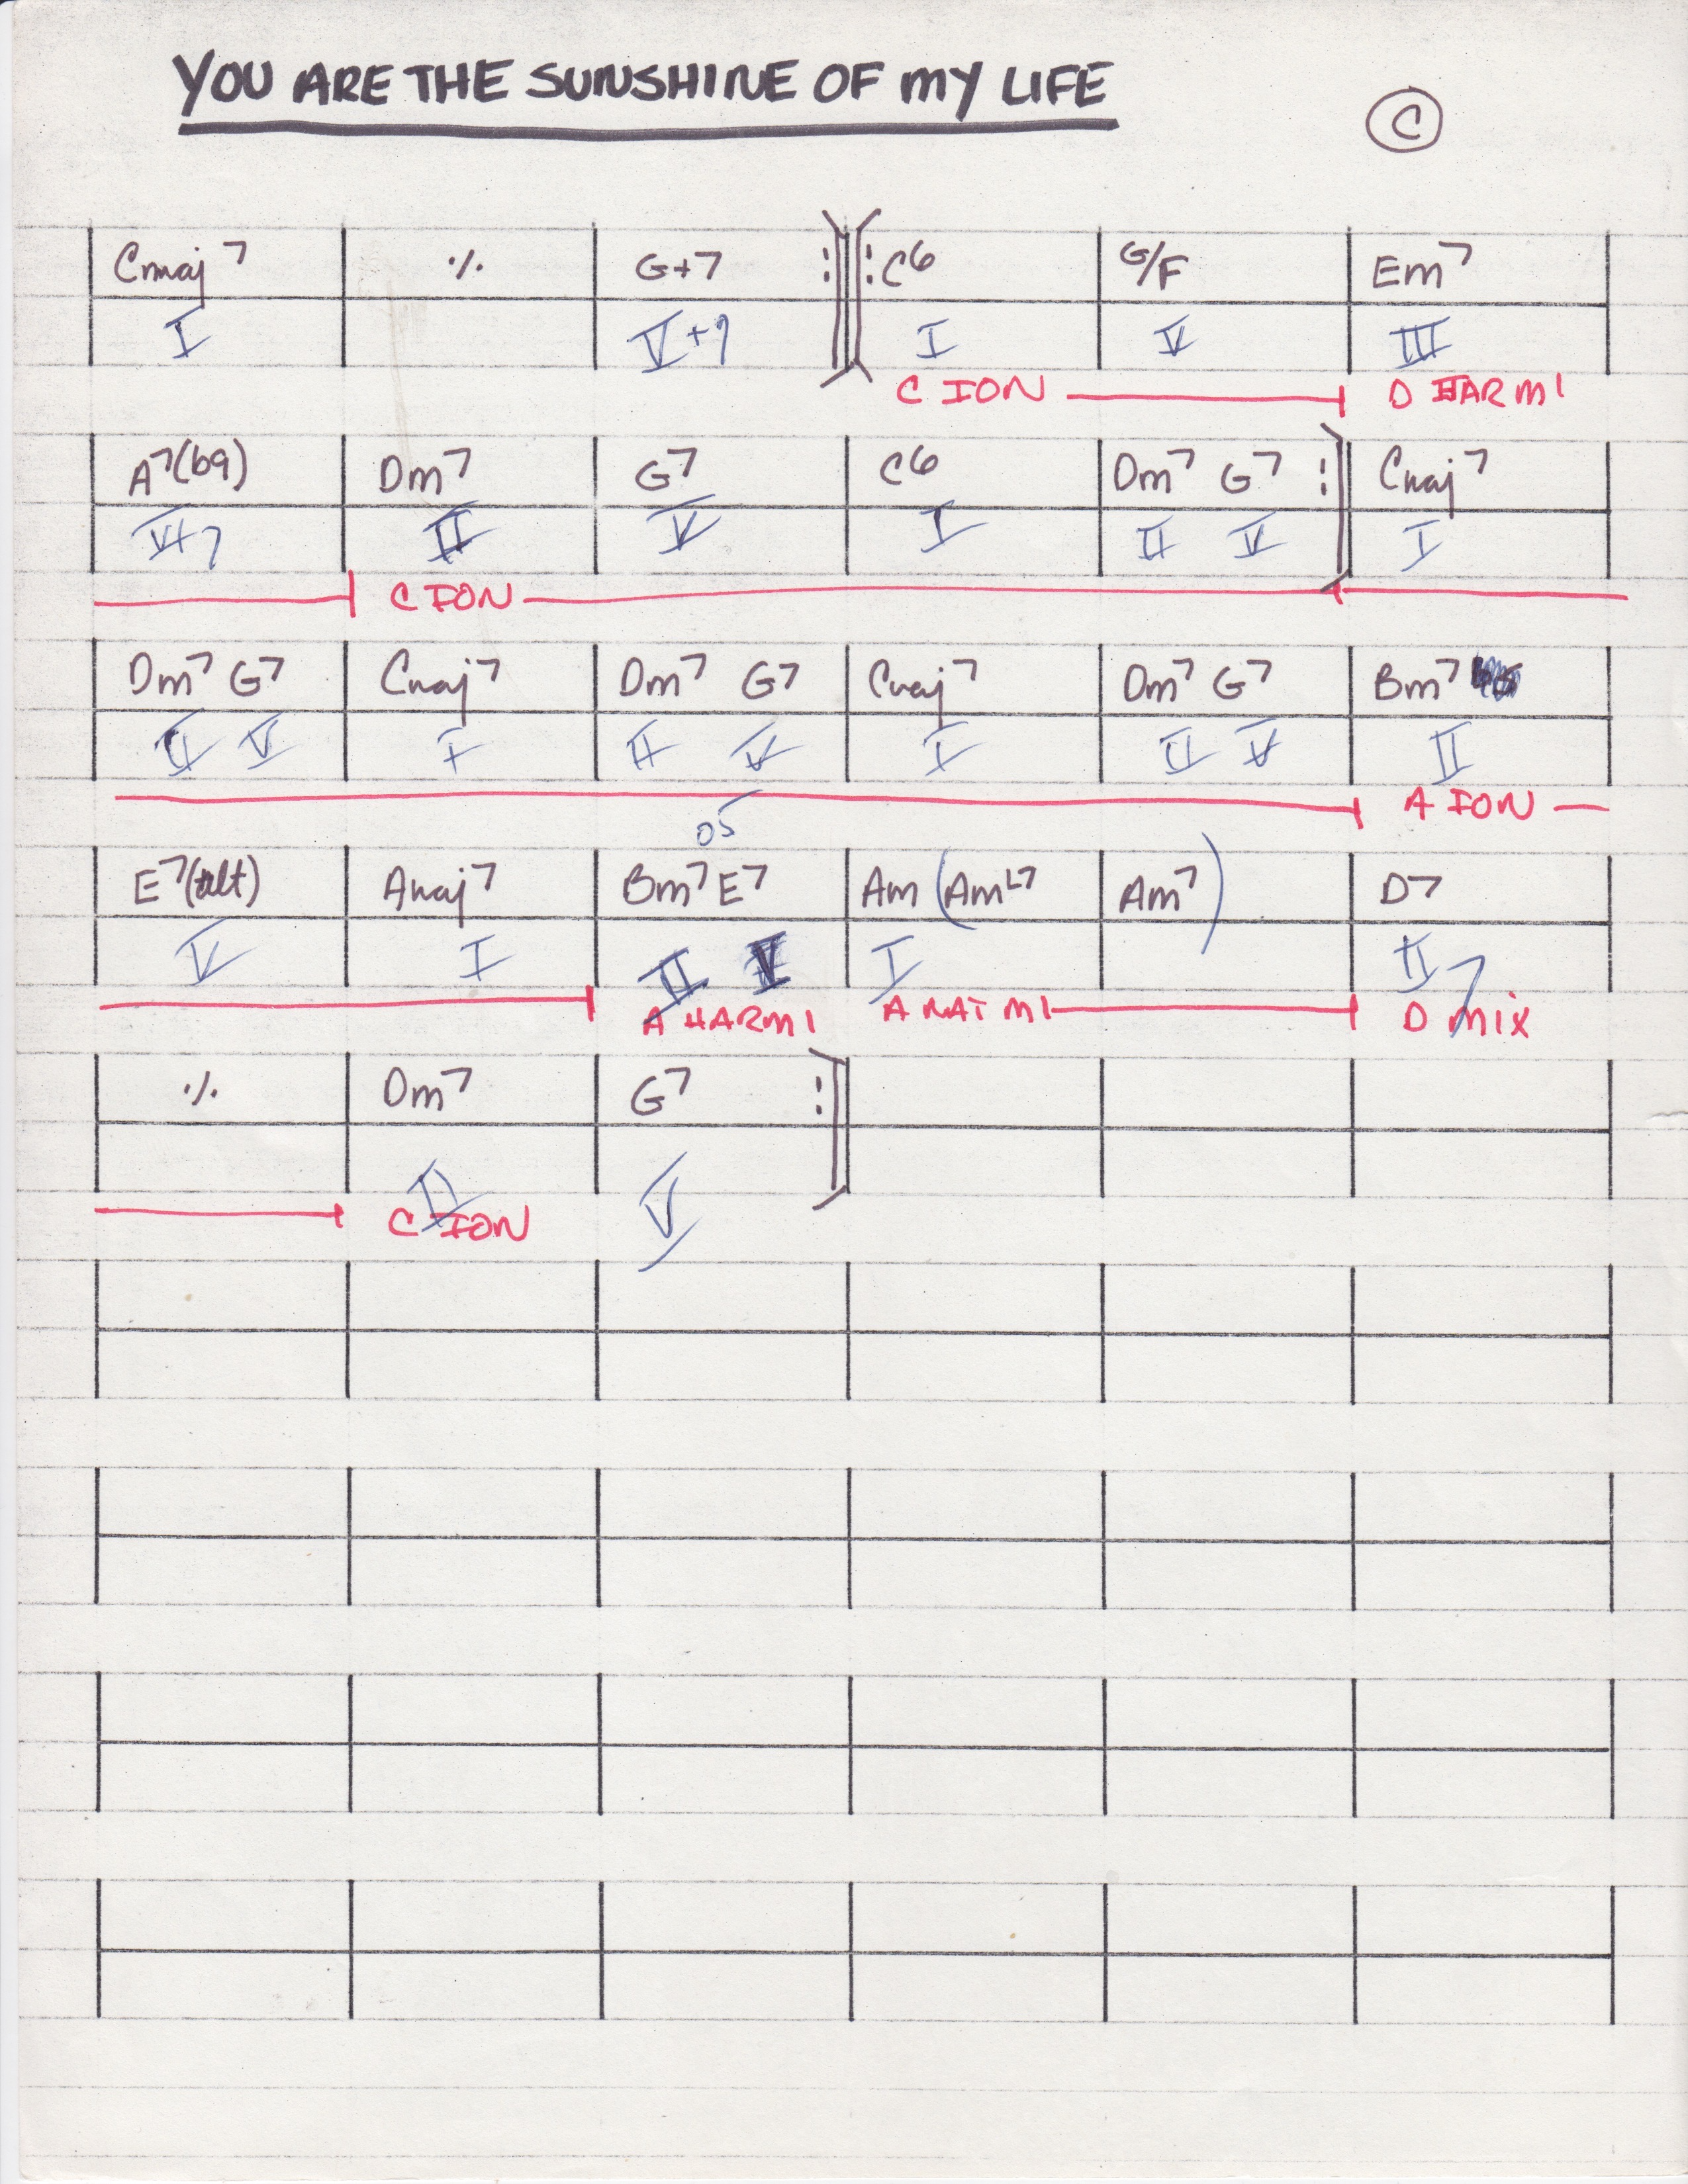 YOU ARE THE SUNSHINE OF MY LIFE
C
Cmaj7 ٪ G+7 :‖: C6 G/F Em7
I V+7 I V III
C ION D HARMI
A7(b9) Dm7 G7 C6 Dm7 G7 : Cmaj7
VI7 II V I II V I
C ION
Dm7 G7 Cmaj7 Dm7 G7 Cmaj7 Dm7 G7 Bm7
II V I II V I II V II
A ION
E7(alt) Amaj7 Bm7 E7 Am (AmL7 Am7) D7
V I II V I II7
A HARMI A NAT MI D MIX
٪ Dm7 G7 :
II V
C ION